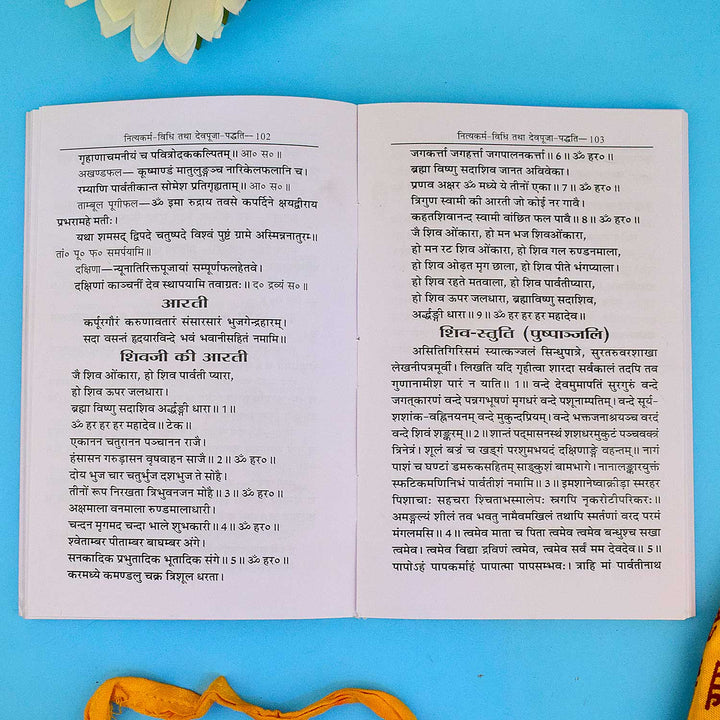 नित्यकर्म-विधि तथा देवपूजा-पद्धति—102
गृहाणाचमनीयं च पवित्रोदककल्पितम्॥ आ० स०॥
अखण्डफल— कूष्माण्डं मातुलुङ्गञ्च नारिकेलफलानि च।
रम्याणि पार्वतीकान्त सोमेश प्रतिगृह्यताम्॥ आ० स०॥
ताम्बूल पूगीफल—ॐ इमा रुद्राय तवसे कपर्दिने क्षयद्वीराय
प्रभरामहे मतीः।
यथा शमसद् द्विपदे चतुष्पदे विश्वं पुष्टं ग्रामे अस्मिन्ननातुरम॥
तां० पू० फ० समर्पयामि॥
दक्षिणा—न्यूनातिरिक्तपूजायां सम्पूर्णफलहेतवे।
दक्षिणां काञ्चनीं देव स्थापयामि तवाग्रतः॥ द० द्रव्यं स०॥
आरती
कर्पूरगौरं करुणावतारं संसारसारं भुजगेन्द्रहारम्।
सदा वसन्तं हृदयारविन्दे भवं भवानीसहितं नमामि॥
शिवजी की आरती
जै शिव ओंकारा, हो शिव पार्वती प्यारा,
हो शिव ऊपर जलधारा।
ब्रह्मा विष्णु सदाशिव अर्द्धङ्गी धारा॥1॥
ॐ हर हर हर महादेव॥ टेक॥
एकानन चतुरानन पञ्चानन राजै।
हंसासन गरुड़ासन वृषवाहन साजै॥2॥ ॐ हर०॥
दोय भुज चार चतुर्भुज दशभुज ते सोहै।
तीनों रूप निरखता त्रिभुवनजन मोहै॥3॥ ॐ हर०॥
अक्षमाला वनमाला रुण्डमालाधारी।
चन्दन मृगमद चन्दा भाले शुभकारी॥4॥ ॐ हर०॥
श्वेताम्बर पीताम्बर बाघम्बर अंगे।
सनकादिक प्रभुतादिक भूतादिक संगे॥5॥ ॐ हर०॥
करमध्ये कमण्डलु चक्र त्रिशूल धरता।
नित्यकर्म-विधि तथा देवपूजा-पद्धति—103
जगकर्त्ता जगहर्त्ता जगपालनकर्त्ता॥6॥ ॐ हर०॥
ब्रह्मा विष्णु सदाशिव जानत अविवेका।
प्रणव अक्षर ॐ मध्ये ये तीनों एका॥7॥ ॐ हर०॥
त्रिगुण स्वामी की आरती जो कोई नर गावै।
कहतशिवानन्द स्वामी वांछित फल पावै॥8॥ ॐ हर०॥
जै शिव ओंकारा, हो मन भज शिवओंकारा,
हो मन रट शिव ओंकारा, हो शिव गल रुण्डनमाला,
हो शिव ओढ़त मृग छाला, हो शिव पीते भंगप्याला।
हो शिव रहते मतवाला, हो शिव पार्वतीप्यारा,
हो शिव ऊपर जलधारा, ब्रह्माविष्णु सदाशिव,
अर्द्धङ्गी धारा॥9॥ ॐ हर हर हर महादेव॥
शिव-स्तुति (पुष्पाञ्जलि)
असितिगिरिसमं स्यात्कज्जलं सिन्धुपात्रे, सुरतरुवरशाखा
लेखनीपत्रमूर्वी। लिखति यदि गृहीत्वा शारदा सर्वकालं तदपि तव
गुणानामीश पारं न याति॥1॥ वन्दे देवमुमापतिं सुरगुरुं वन्दे
जगत्कारणं वन्दे पन्नगभूषणं मृगधरं वन्दे पशूनाम्पतिम्। वन्दे सूर्य-
शशांक-वह्निनयनम् वन्दे मुकुन्दप्रियम्। वन्दे भक्तजनाश्रयञ्च वरदं
वन्दे शिवं शङ्करम्॥2॥ शान्तं पद्मासनस्थं शशधरमुकुटं पञ्चवक्त्रं
त्रिनेत्रं। शूलं बज्रं च खड्गं परशुमभयदं दक्षिणाङ्गे वहन्तम्॥ नागं
पाशं च घण्टां डमरुकसहितम् साङ्कुशं बामभागे। नानालङ्कारयुक्तं
स्फटिकमणिनिभं पार्वतीशं नमामि॥3॥ इमशानेष्वाक्रीड़ा स्मरहर
पिशाचाः सहचरा श्चिताभस्मालेपः स्त्रगपि नृकरोटीपरिकरः॥
अमङ्गल्यं शीलं तव भवतु नामैवमखिलं तथापि स्मर्तणां वरद परमं
मंगलमसि॥4॥ त्वमेव माता च पिता त्वमेव त्वमेव बन्धुश्च सखा
त्वमेव। त्वमेव विद्या द्रविणं त्वमेव, त्वमेव सर्वं मम देवदेव॥5॥
पापोऽहं पापकर्माहं पापात्मा पापसम्भवः। त्राहि मां पार्वतीनाथ